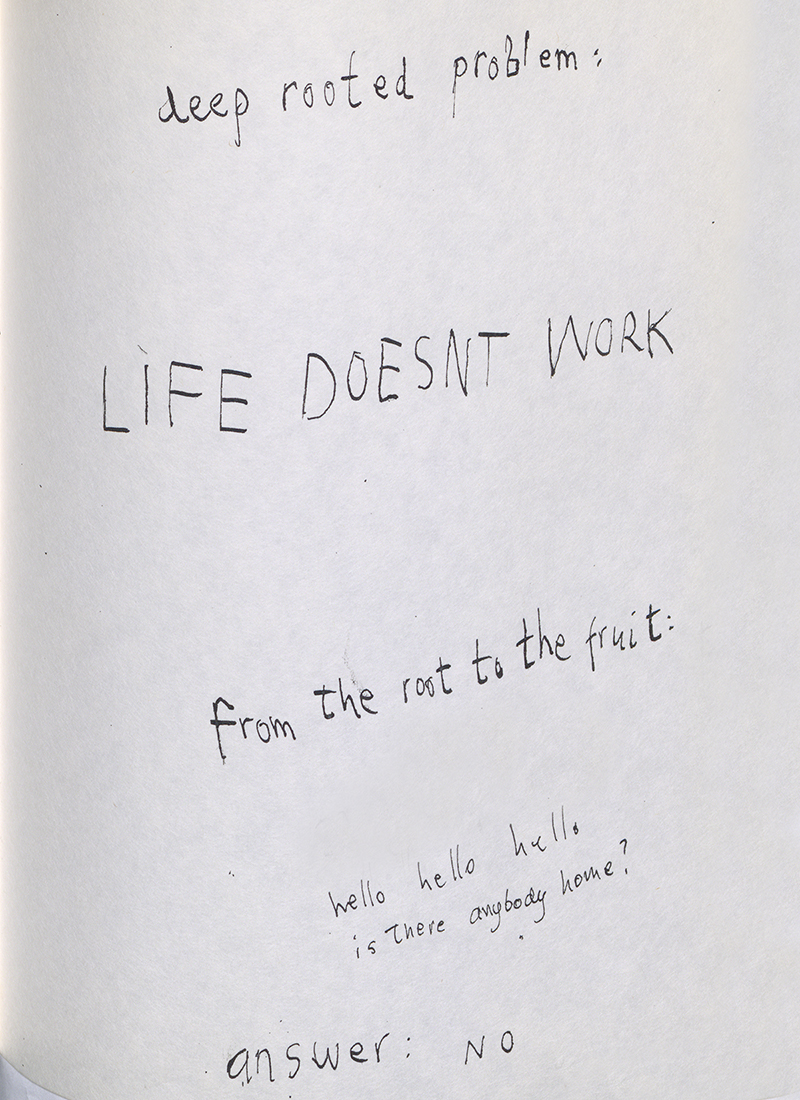 deep rooted problem:
LIFE DOESNT WORK
from the root to the fruit:
hello hello hello
is there anybody home?
answer: NO